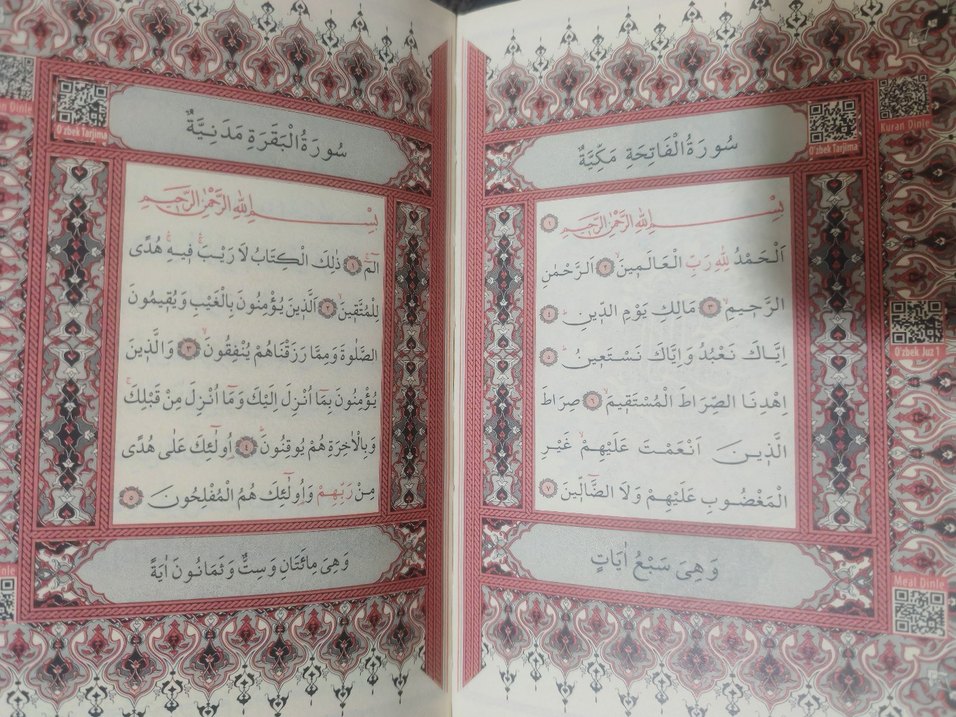 سُورَةُ الْفَاتِحَةِ مَكِّيَّةٌ
O'zbek Tarjima
Kuran Dinle
بِسْمِ اللهِ الرَّحْمٰنِ الرَّحِيمِ ١
اَلْحَمْدُ لِلّٰهِ رَبِّ الْعَالَمِينَ ٢ اَلرَّحْمٰنِ
الرَّحِيمِ ٣ مَالِكِ يَوْمِ الدِّينِ ٤
اِيَّاكَ نَعْبُدُ وَاِيَّاكَ نَسْتَعِينُ ٥
اِهْدِنَا الصِّرَاطَ الْمُسْتَقِيمَ ٦ صِرَاطَ
الَّذِينَ اَنْعَمْتَ عَلَيْهِمْ غَيْرِ
الْمَغْضُوبِ عَلَيْهِمْ وَلَا الضَّالِّينَ ٧
وَهِيَ سَبْعُ اٰيَاتٍ
O'zbek Juz 1
Meal Dinle
سُورَةُ الْبَقَرَةِ مَدَنِيَّةٌ
O'zbek Tarjima
an Dinle
بِسْمِ اللهِ الرَّحْمٰنِ الرَّحِيمِ
الٓمٓ ١ ذٰلِكَ الْكِتَابُ لَا رَيْبَ فِيهِ هُدًى
لِلْمُتَّقِينَ ٢ اَلَّذِينَ يُؤْمِنُونَ بِالْغَيْبِ وَيُقِيمُونَ
الصَّلٰوةَ وَمِمَّا رَزَقْنَاهُمْ يُنْفِقُونَ ٣ وَالَّذِينَ
يُؤْمِنُونَ بِمَٓا اُنْزِلَ اِلَيْكَ وَمَٓا اُنْزِلَ مِنْ قَبْلِكَ
وَبِالْاٰخِرَةِ هُمْ يُوقِنُونَ ٤ اُولٰٓئِكَ عَلٰى هُدًى
مِنْ رَبِّهِمْ وَاُولٰٓئِكَ هُمُ الْمُفْلِحُونَ ٥
وَهِيَ مِائَتَانِ وَسِتٌّ وَثَمَانُونَ اٰيَةً
nle